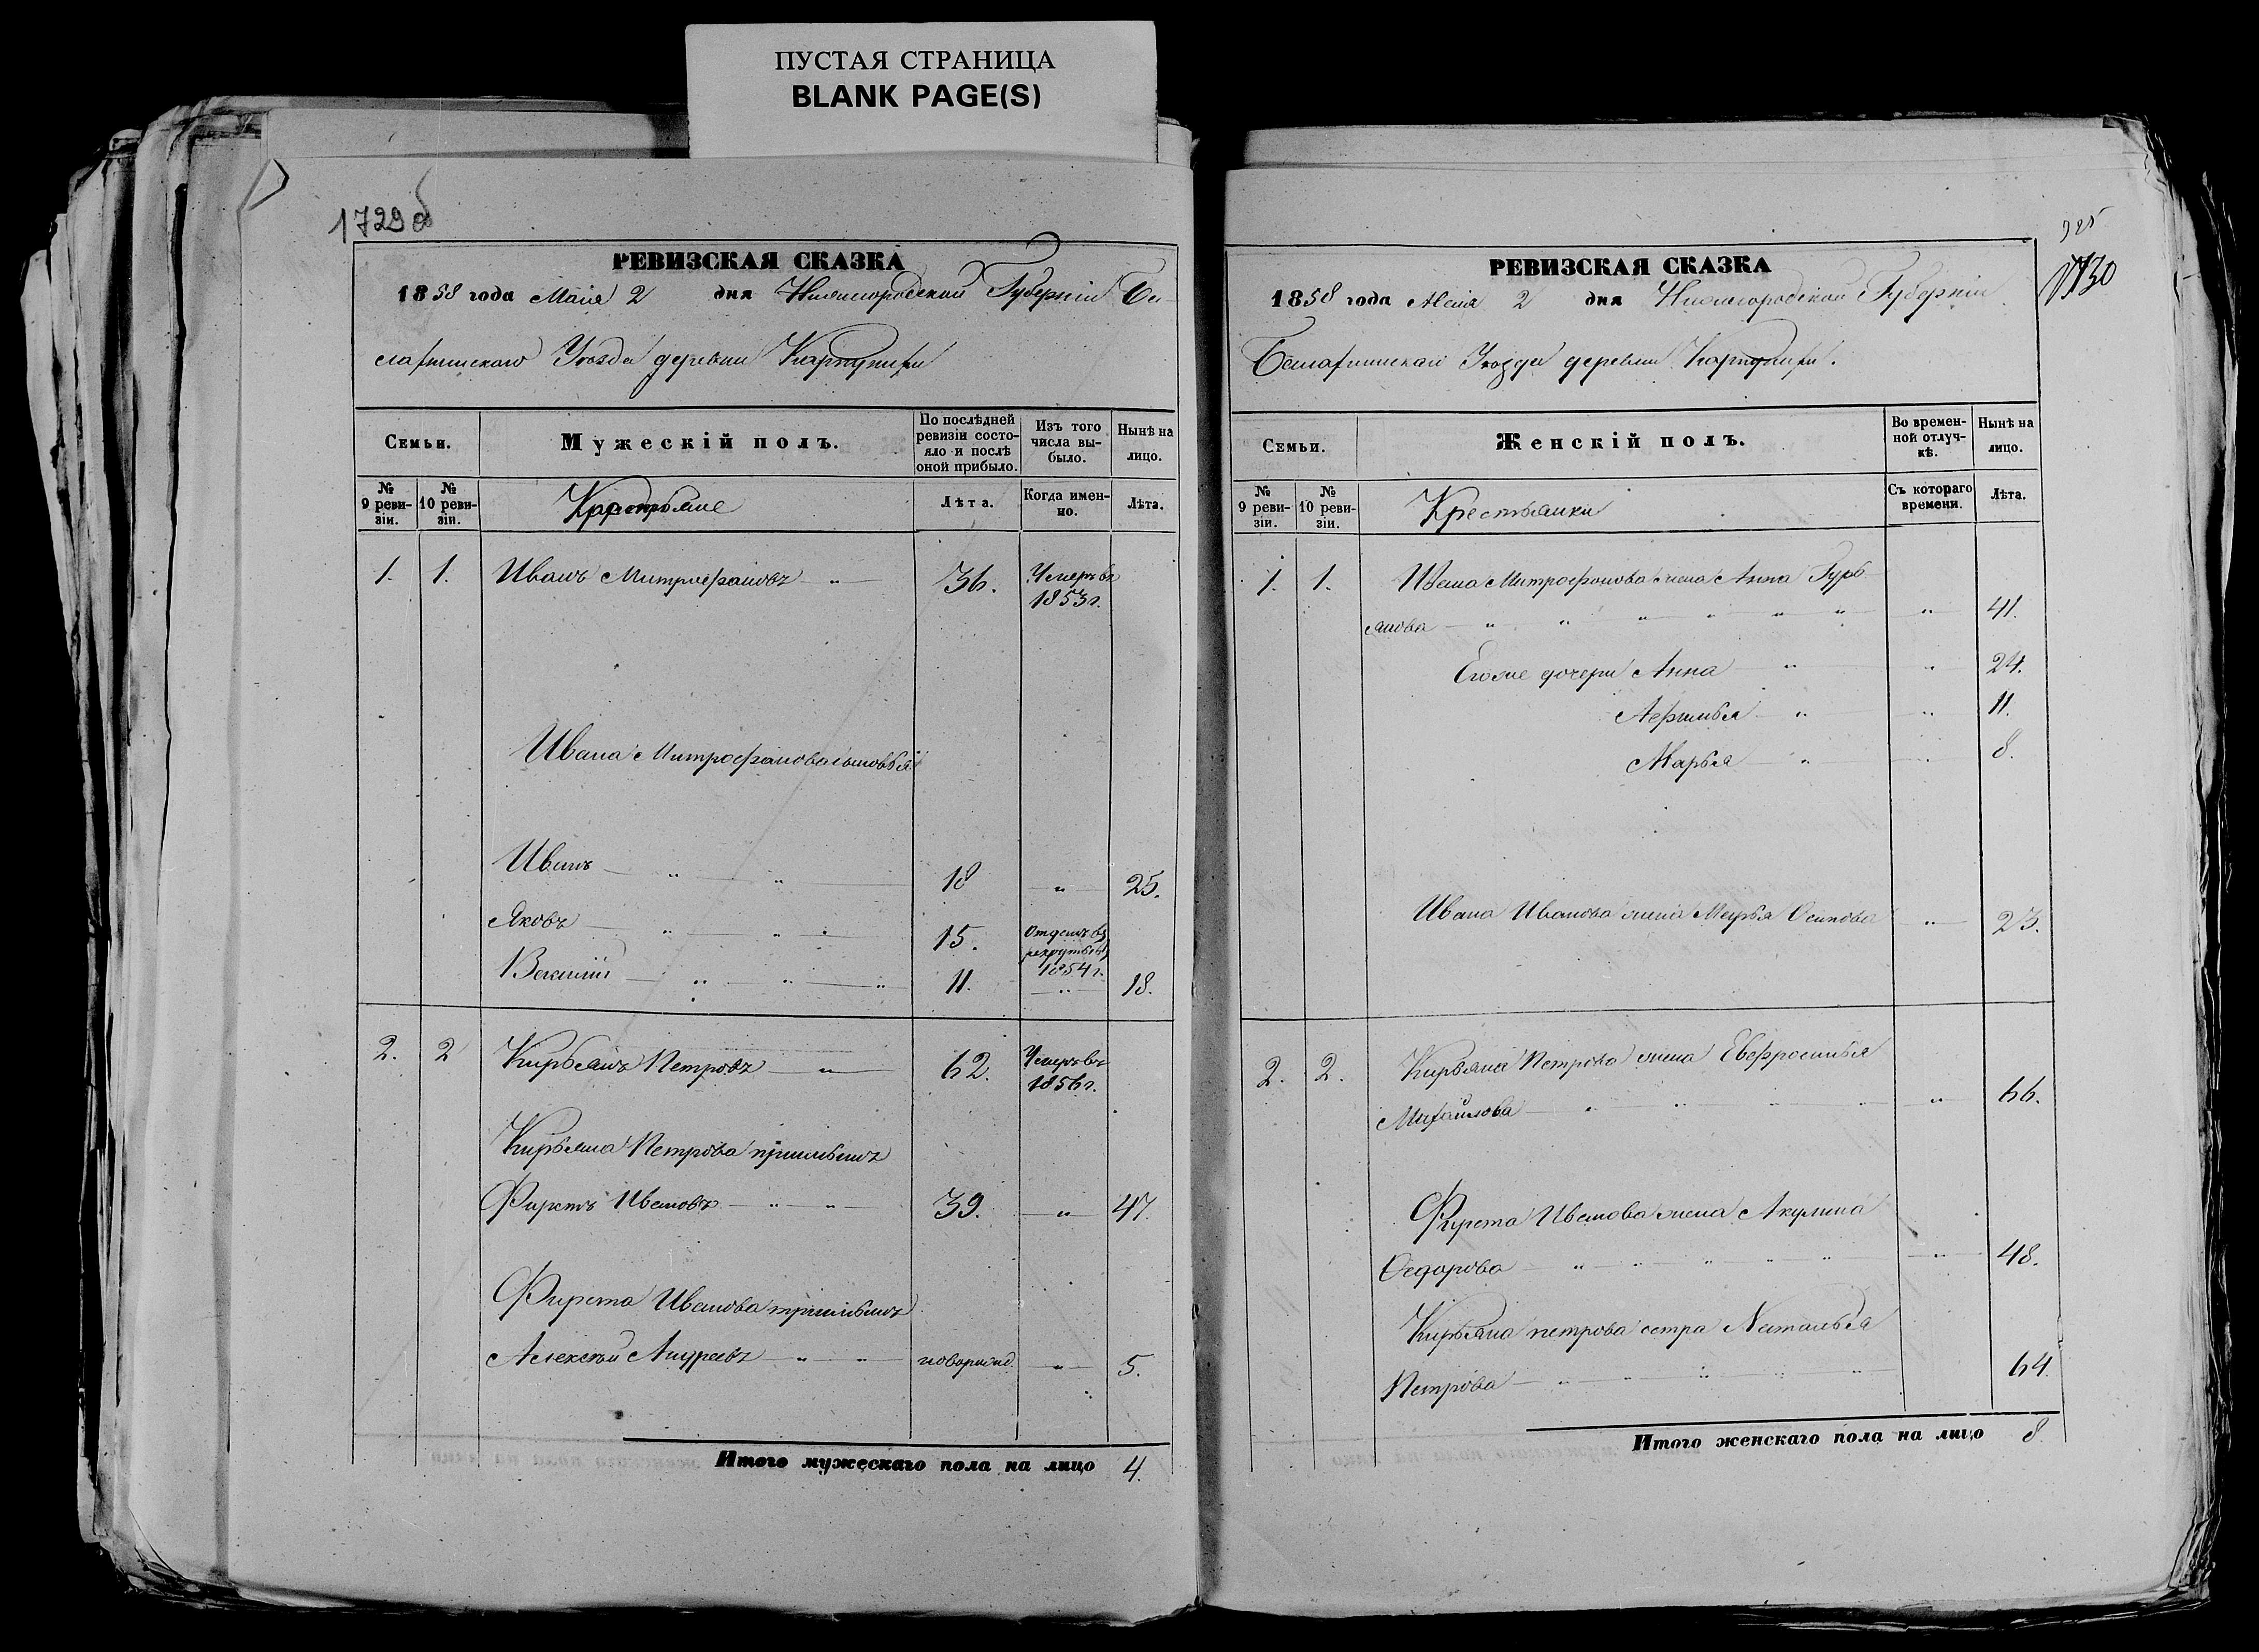 ПУСТАЯ СТРАНИЦА
BLANK PAGE(S)
1729 об
РЕВИЗСКАЯ СКАЗКА
1858 года Маія 2 дня Нижегородской Губерніи Ва
сильскаго Уѣзда деревни
Семьи.
Мужескій полъ.
По послѣдней ревизіи состояло и послѣ оной прибыло.
Изъ того числа выбыло.
Нынѣ на лицо.
№ 9 ревизіи.
№ 10 ревизіи.
Крестьяне
Лѣта.
Когда именно.
Лѣта.
1. 1. Иванъ Митрофановъ 36. Умеръ въ 1853 г.
Ивана Митрофанова сыновья
Иванъ 18 25.
Яковъ 15. Отданъ въ рекруты въ 1854 г.
Василій 11. 18.
2. 2 Кирьянъ Петровъ 62. Умеръ въ 1856 г.
Кирьяна Петрова пріимышъ
Фирстъ Ивановъ 39. 47.
Фирста Иванова пріимышъ
Алексѣй Андреевъ новорожд. 5.
Итого мужескаго пола на лицо 4.
925
1730
РЕВИЗСКАЯ СКАЗКА
1858 года Маія 2 дня Нижегородской Губерніи
Уѣзда деревни
Семьи.
Женскій полъ.
Во временной отлучкѣ.
Нынѣ на лицо.
№ 9 ревизіи.
№ 10 ревизіи.
Крестьянки
Съ котораго времени.
Лѣта.
1. 1. Ивана Митрофанова жена Анна Гурь
янова 41.
Егоже дочери Анна 24.
11.
Марья 8.
Ивана Иванова жена Марья Осипова 23.
2. 2. Кирьяна Петрова жена Евфросинья
Михайлова 66.
Фирста Иванова жена Акулина
Федорова 48.
Кирьяна петрова сетра Наталья
Петрова 64.
Итого женскаго пола на лицо 8